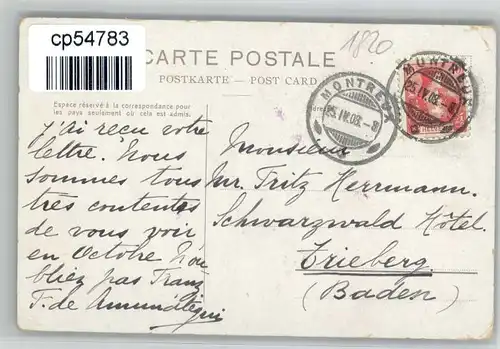 cp54783
1820
CARTE POSTALE
POSTKARTE — POST CARD
Espace réservé à la correspondance pour
les pays seulement où cela est admis.
MONTREUX
25.IV.08.–8
MONTREUX
25.IV.08.–8
J'ai reçu votre
lettre. Nous
sommes tous
très contentes
de vous voir
en Octobre N'ou
bliez pas Franz
F. de Amunátegui
Monsieur
Mr. Fritz Herrmann.
Schwarzwald Hôtel.
Trieberg
(Baden)